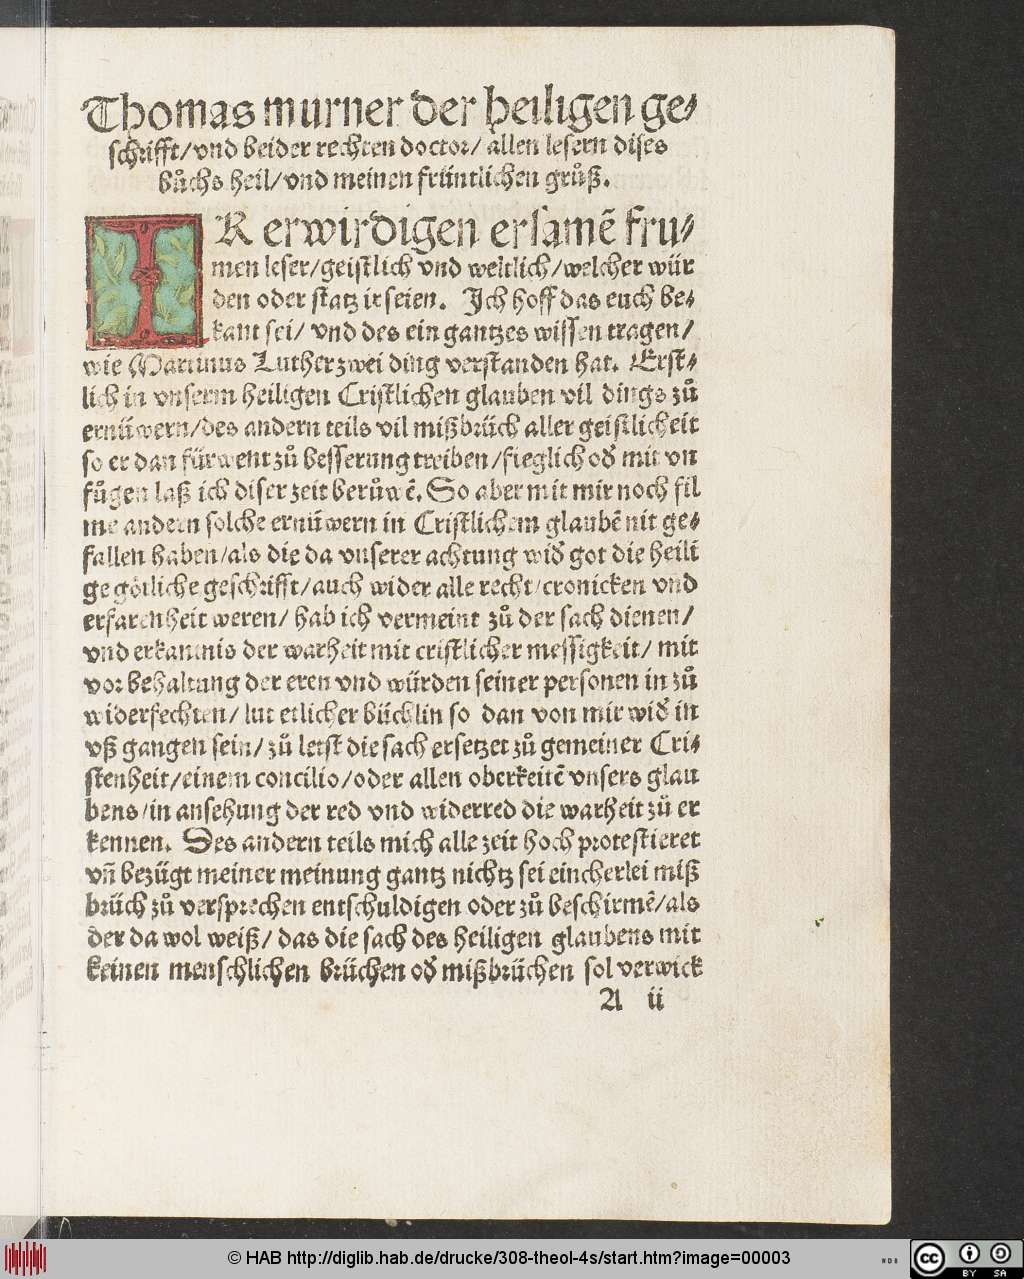 Thomas murner der heiligen ge⸗
schrifft/vnd beider rechten doctor/ allen lesern dises
bůchs heil/vnd meinen früntlichen grůß.
IR erwirdigen ersamẽ fru⸗
men leser/geistlich vnd weltlich/welcher wür
den oder statz ir seien. Ich hoff das euch be⸗
kant sei/ vnd des ein gantzes wissen tragen/
wie Martinus Luther zwei ding verstanden hat. Erst⸗
lich in vnserm heiligen Cristlichen glauben vil dings zů
ernüwern/des andern teils vil mißbrüch aller geistlicheit
so er dan fürwent zů besserung treiben/fieglich od̕ mit vn
fůgen laß ich diser zeit berůwẽ. So aber mit mir noch fil
me andern solche ernüwern in Cristlichem glaubẽ nit ge⸗
fallen haben/als die da vnserer achtung wid̕ got die heilĩ
ge götliche geschrifft/auch wider alle recht/cronicken vnd
erfarenheit weren/ hab ich vermeint zů der sach dienen/
vnd erkantnis der warheit mit cristlicher messigkeit/ mit
vor behaltung der eren vnd würden seiner personen in zů
widerfechten/ lut etlicher büchlin so dan von mir wid̕ in
vß gangen sein/ zů letst die sach ersetzet zů gemeiner Cri⸗
stenheit/einem concilio/oder allen oberkeitẽ vnsers glau
bens/in ansehung der red vnd widerred die warheit zů er
kennen. Des andern teils mich alle zeit hoch protestieret
vñ bezügt meiner meinung gantz nichtz sei eincherlei miß
brüch zů versprechen entschuldigen oder zů beschirmẽ/als
der da wol weiß/ das die sach des heiligen glaubens mit
keinen menschlichen brüchen od̕ mißbrüchen sol verwick
A ii
© HAB http://diglib.hab.de/drucke/308-theol-4s/start.htm?image=00003
WDB
cc BY SA